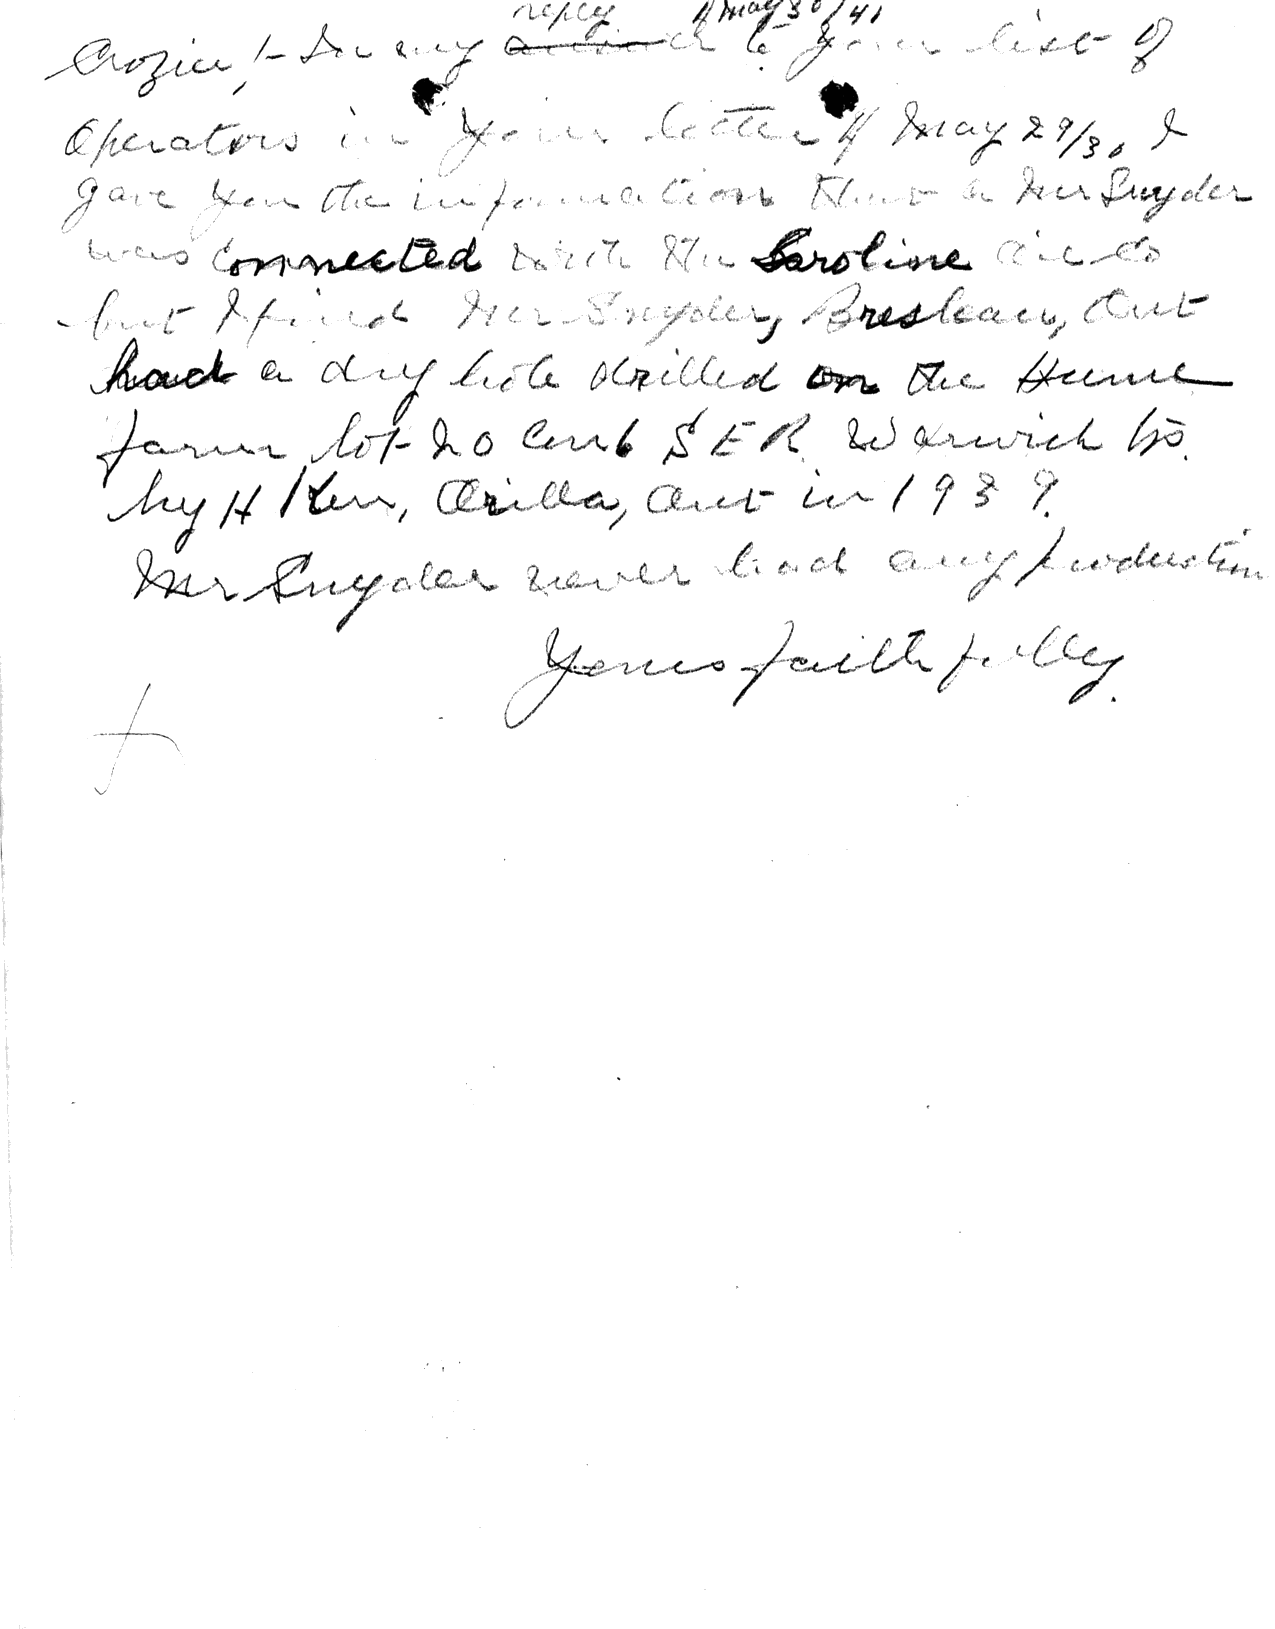 reply of May 30/41
Crozier, :- In my to your list of
Operators in your letter of May 29/30, I
gave you the information that a Mr Snyder
was connected with the Caroline Oil Co
but I find Mr Snyder, Breslau, Ont
had a dry hole drilled on the Hume
farm lot 20 Con 6 S E R. Warwick tp.
by H Kerr, Orilla, Ont in 1939.
Mr Snyder never had any production
Yours faithfully.